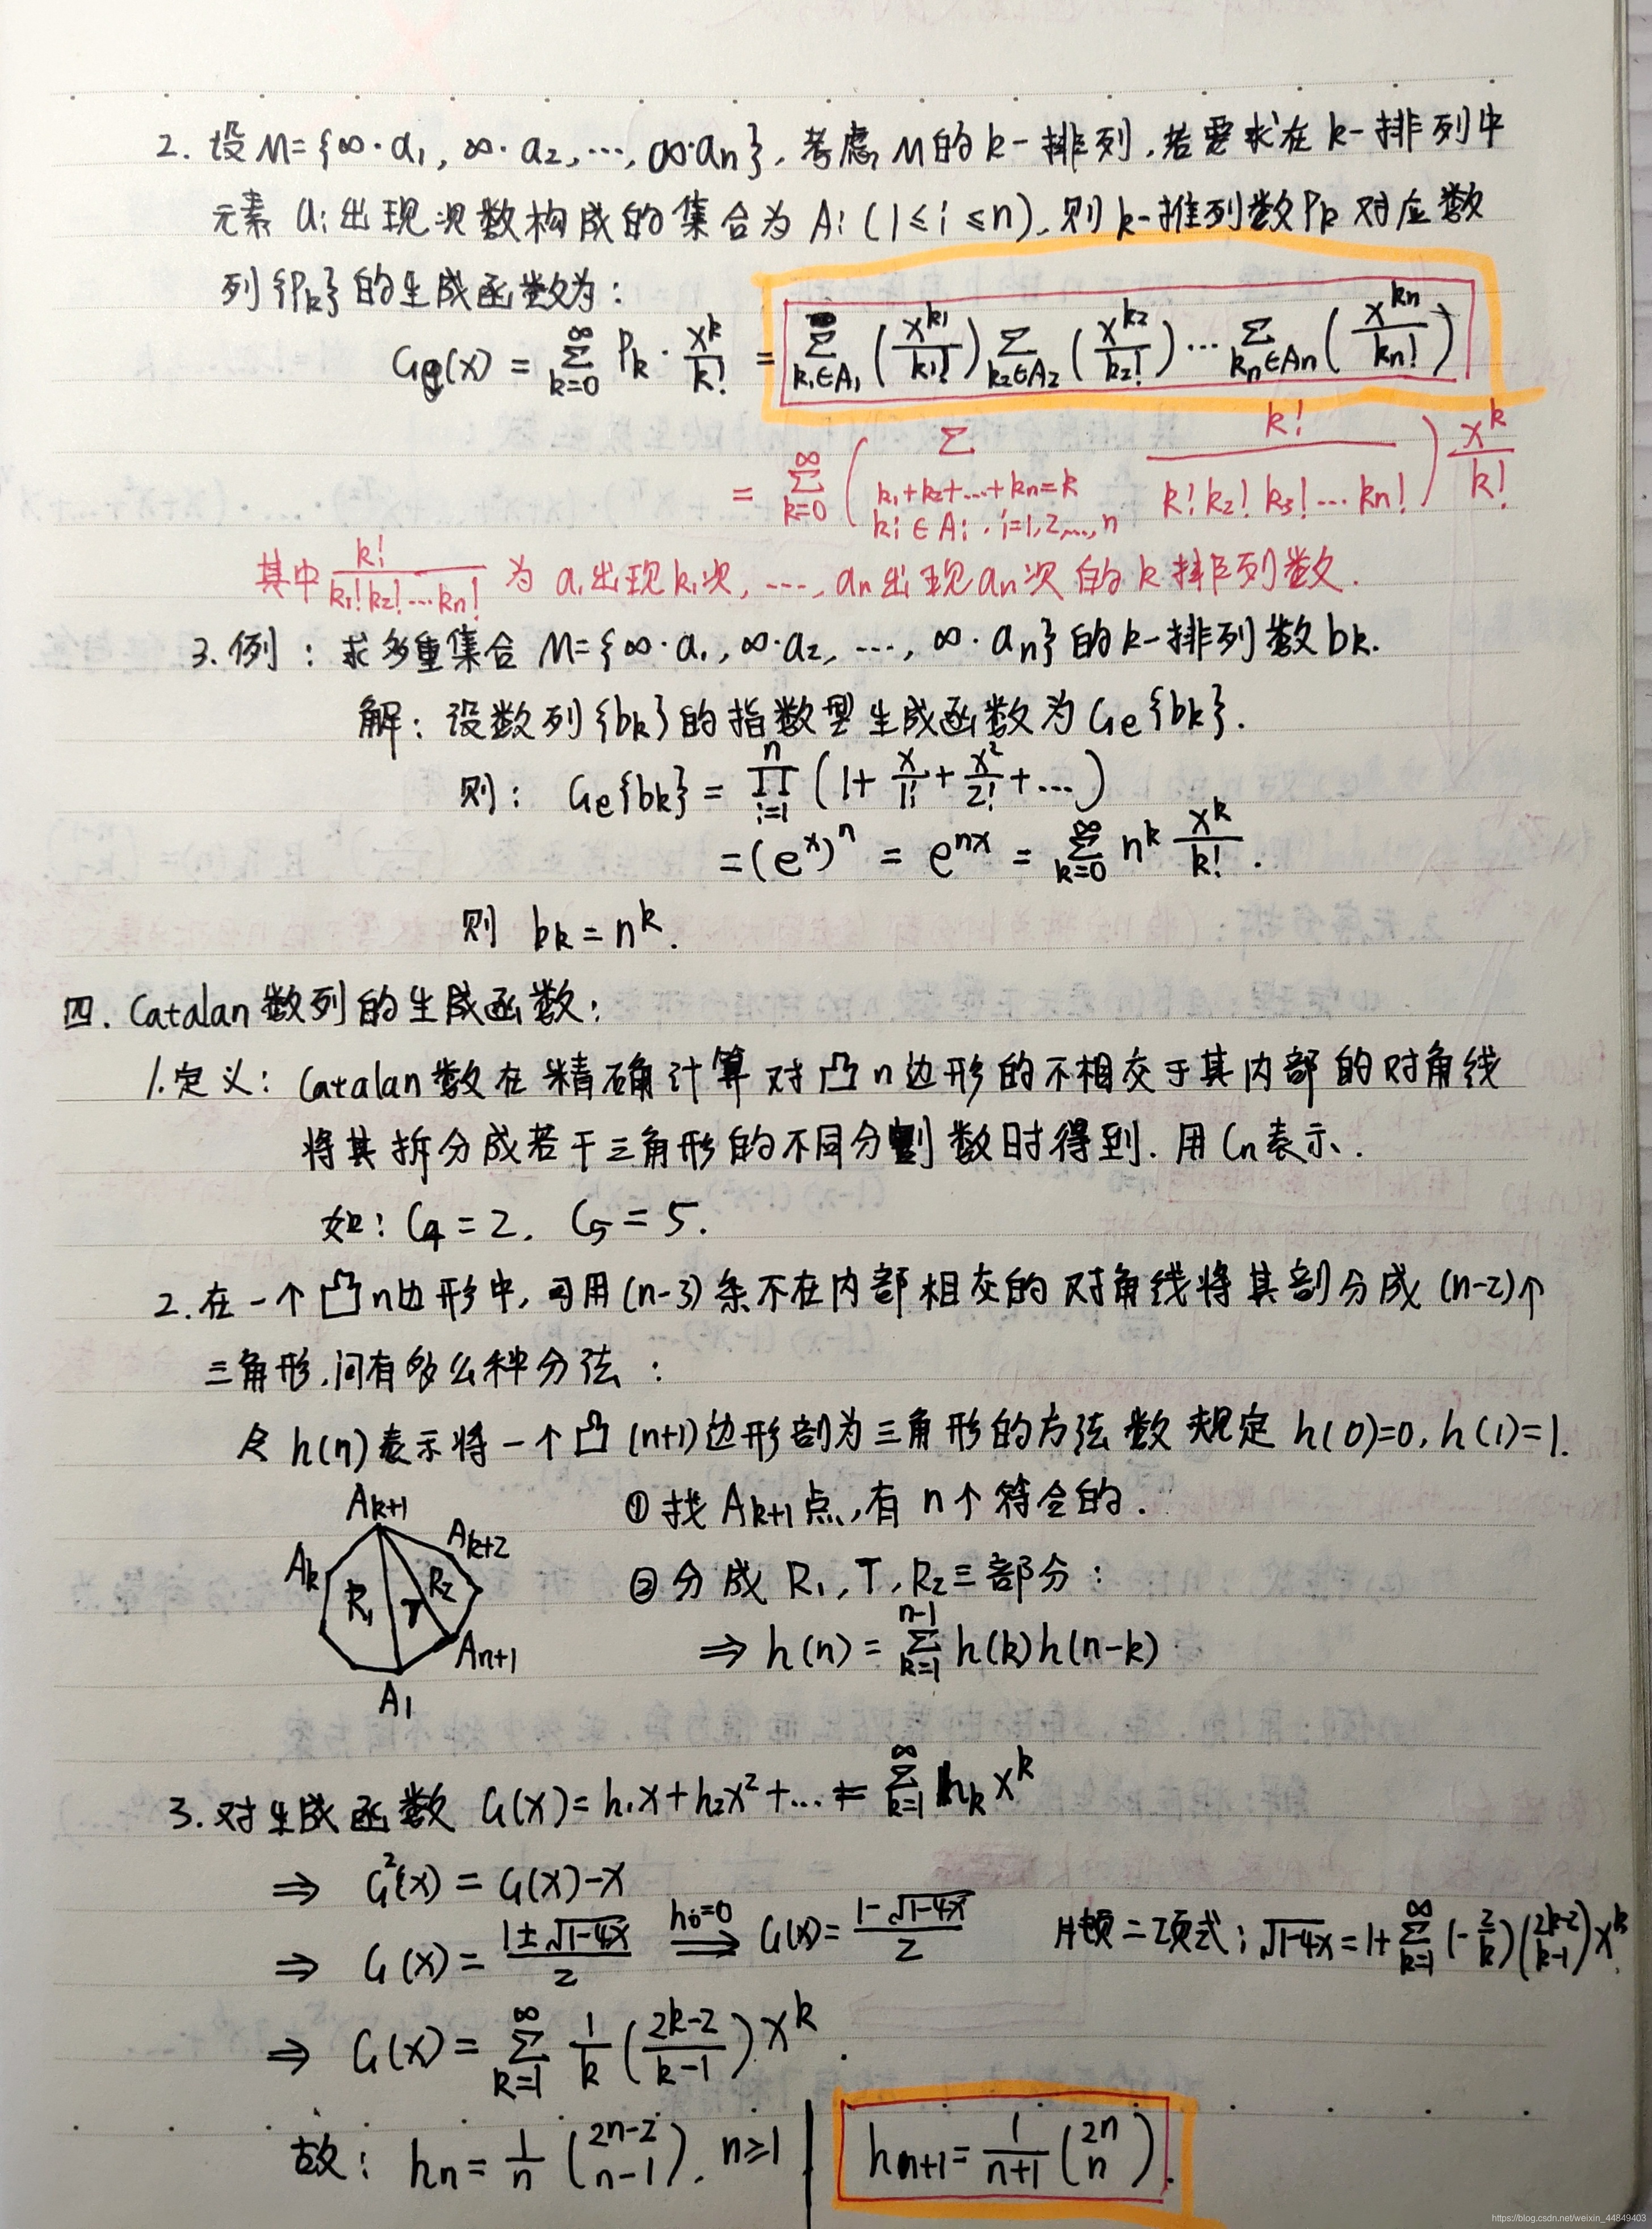 2. 设 M={∞·a₁, ∞·a₂, ..., ∞·aₙ}, 考虑 M 的 k-排列, 若要求在 k-排列中
元素 aᵢ 出现次数构成的集合为 Aᵢ (1≤i≤n), 则 k-排列数 Pₖ 对应数
列{Pₖ}的生成函数为:
Ge(x) = ∑_{k=0}^{∞} Pₖ · x^k/k! = ∑_{k₁∈A₁} (x^{k₁}/k₁!) ∑_{k₂∈A₂} (x^{k₂}/k₂!) ... ∑_{kₙ∈Aₙ} (x^{kₙ}/kₙ!)
= ∑_{k=0}^{∞} ( ∑_{k₁+k₂+...+kₙ=k, kᵢ∈Aᵢ, i=1,2,...,n} k!/(k! k₂! k₃! ... kₙ!) ) x^k/k!
其中 k!/(k₁! k₂! ... kₙ!) 为 a₁出现k₁次, ..., aₙ出现aₙ次的 k 排列数.
3. 例: 求多重集合 M={∞·a₁, ∞·a₂, ..., ∞·aₙ}的 k-排列数 bₖ.
解: 设数列{bₖ}的指数型生成函数为 Ge{bₖ}.
则: Ge{bₖ} = ∏_{i=1}^{n} (1+ x/1! + x²/2! + ...)
=(e^x)^n = e^{nx} = ∑_{k=0}^{∞} n^k x^k/k! .
则 bₖ = n^k.
四. Catalan 数列的生成函数:
1. 定义: Catalan 数在精确计算对凸 n 边形的不相交于其内部的对角线
将其拆分成若干三角形的不同分割数时得到. 用 Cₙ 表示.
如: C₄ = 2, C₅ = 5.
2. 在一个凸 n 边形中, 可用 (n-3) 条不在内部相交的对角线将其剖分成 (n-2)个
三角形, 问有多么种分法:
令 h(n) 表示将一个凸 (n+1) 边形剖为三角形的方法数 规定 h(0)=0, h(1)=1.
Ak+1
Ak+2
Ak
R₁
T
R₂
An+1
A1
① 找 Ak+1 点, 有 n 个符合的.
② 分成 R₁, T, R₂ 三部分:
⇒ h(n) = ∑_{k=1}^{n-1} h(k)h(n-k)
3. 对生成函数 G(x) = h₁x+h₂x²+... = ∑_{k=1}^{∞} hₖx^k
⇒ G²(x) = G(x)-x
⇒ G(x) = (1±√(1-4x))/2 ⟹(h₀=0) G(x) = (1-√(1-4x))/2 牛顿二项式: √(1-4x) = 1+∑_{k=1}^{∞} (-2/k)(2k-2 k-1)x^k.
⇒ G(x) = ∑_{k=1}^{∞} 1/k ((2k-2)/(k-1)) x^k .
故: hₙ = 1/n (2n-2 n-1), n≥1 | hₙ₊₁ = 1/(n+1) (2n n).
https://blog.csdn.net/weixin_44849403